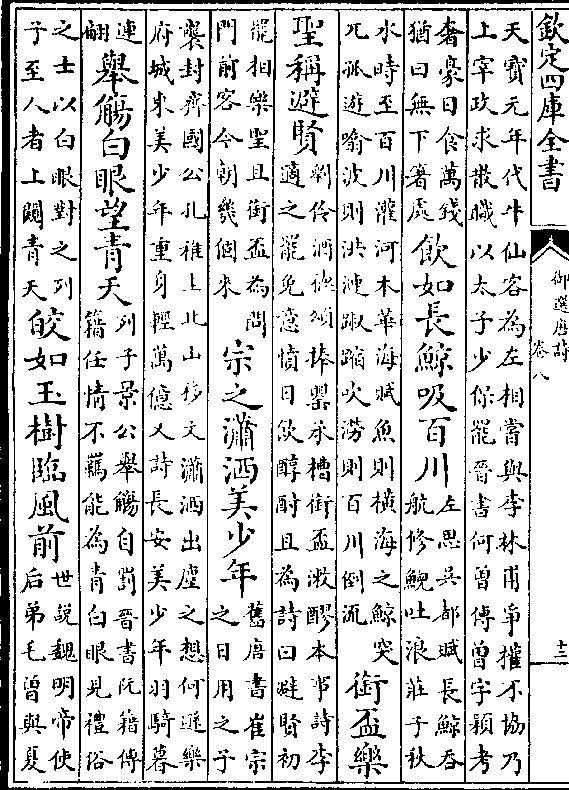 欽定四庫全書
御選唐詩
卷八
十二
天寶元年代牛仙客為左相嘗與李林甫爭權不協乃
上宰政求散職以太子少保罷晉書何曾傳曾字穎考
奢豪日食萬錢
猶曰無下箸處
飲如長鯨吸百川
左思吳都賦長鯨吞
航修鯢吐浪莊子秋
水時至百川灌河木華海賦魚則橫海之鯨突
兀孤遊噏波則洪漣踧蹜吹澇則百川倒流
銜盃樂
聖稱避賢
劉伶酒德頌捧甖承槽銜盃漱醪本事詩李
適之罷免意憤日飲醇酎且為詩曰避賢初
罷相樂聖且銜盃為問
門前客今朝幾個來
宗之瀟洒美少年
舊唐書崔宗
之日用之子
襲封齊國公孔稚圭北山移文瀟洒出塵之想何遜樂
府城東美少年重身輕萬億又詩長安美少年羽騎暮
連
翩
舉觴白眼望青天
列子景公舉觴自罰晉書阮籍傳
籍任情不羈能為青白眼見禮俗
之士以白眼對之列
子至人者上闚青天
皎如玉樹臨風前
世說魏明帝使
后弟毛曾與夏